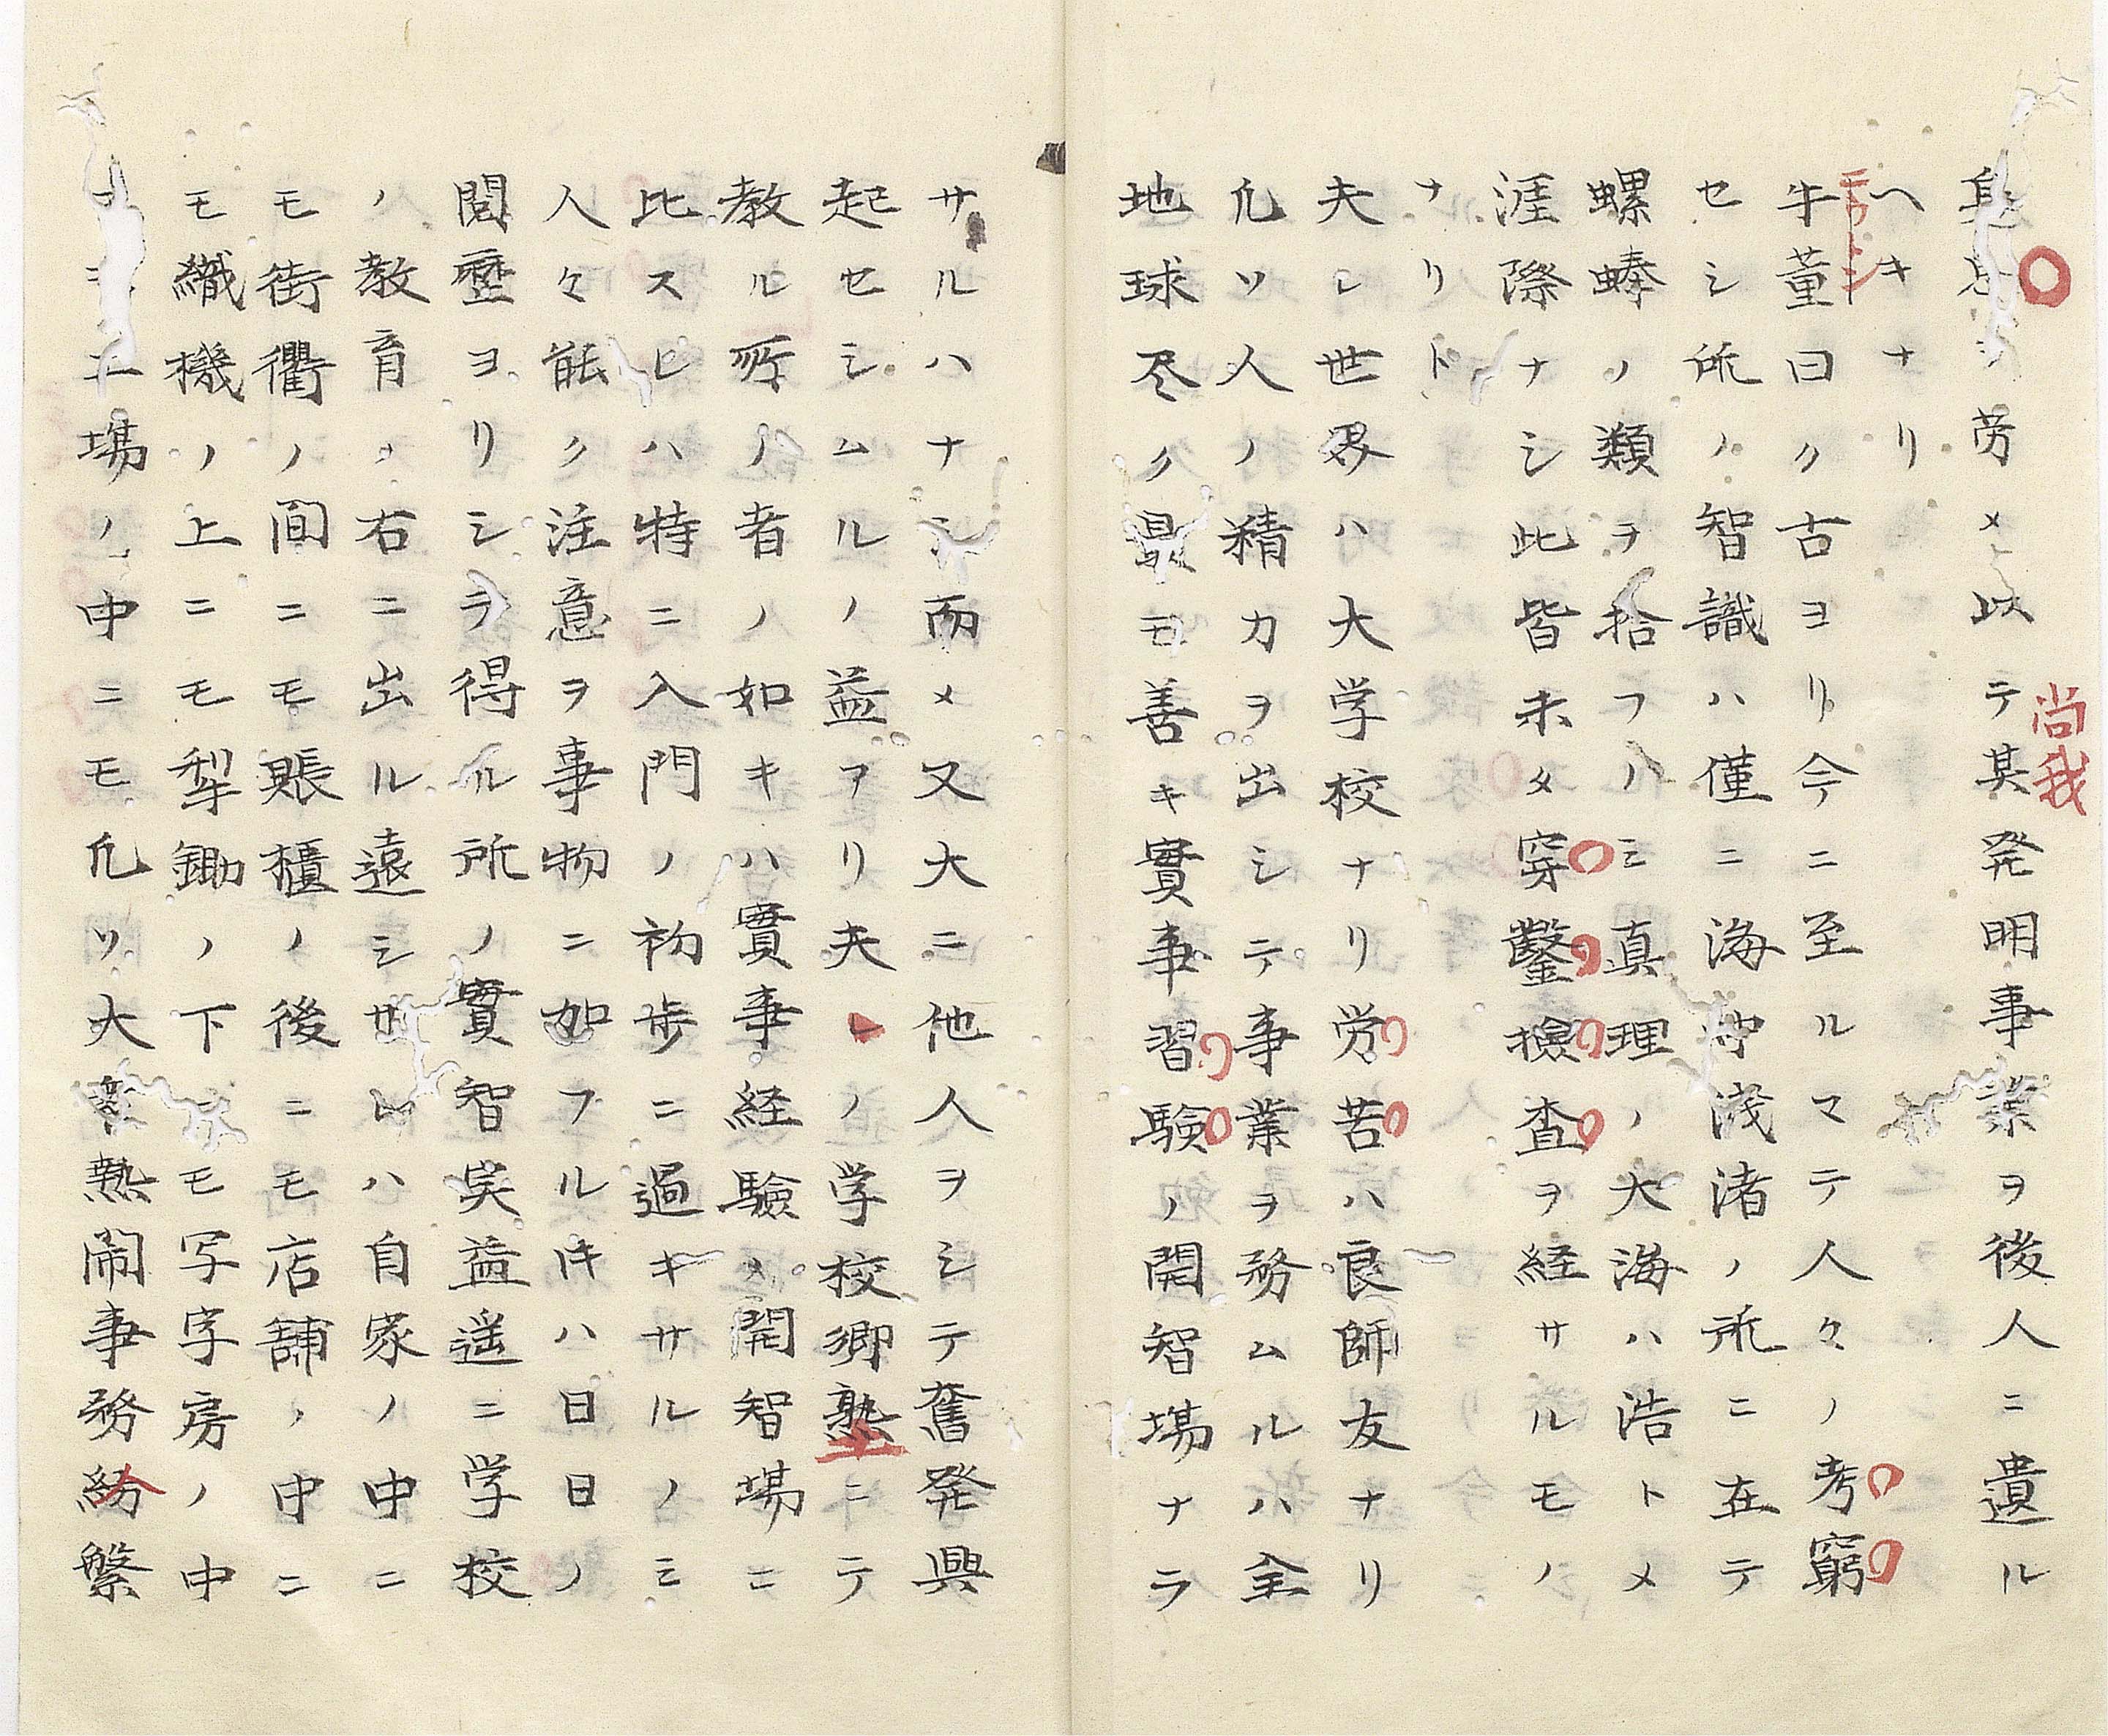 ノ労メ以テ其発明事業ヲ後人ニ遺ル
尚我
ヘキナリ
ニウトン
牛董曰ク古ヨリ今ニ至ルマテ人々ノ考窮
セシ所ノ智識ハ僅ニ海中浅渚ノ所ニ在テ
螺蜯ノ類ヲ拾フノミ真理ノ大海ハ浩トメ
涯際ナシ此皆未タ穿鑿撿査ヲ経サルモノ
ナリト
夫レ世界ハ大学校ナリ労苦ハ良師友ナリ
凡ソ人ノ精力ヲ出シテ事業ヲ務ムルハ全
地球尽ク最モ善キ實事習驗ノ開智場ナラ
サルハナシ而メ又大ニ他人ヲシテ奮発興
起セシムルノ益アリ夫レノ学校郷塾ニテ
教ル所ノ者ノ如キハ實事経驗ノ開智場ニ
比スレハ特ニ入門ノ初歩ニ過キサルノミ
人々能ク注意ヲ事物ニ加フル片ハ日日ノ
閲歴ヨリシテ得ル所ノ實智実益遥ニ学校
ノ教育ノ右ニ出ル遠シサレハ自家ノ中ニ
モ街衢ノ間ニモ賬櫃ノ後ニモ店舗ノ中ニ
モ織機ノ上ニモ犁鋤ノ下ニモ写字房ノ中
ニモ工場ノ中ニモ凡ソ大衆熱閙事務紛繁